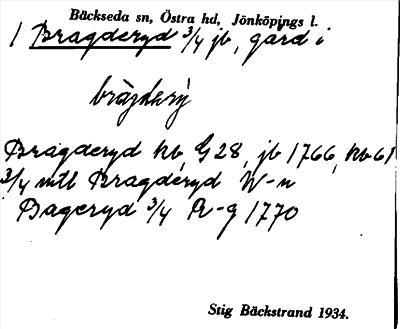 Bäckseda sn, Östra hd, Jönköpings l.
1 Bragderyd 3/4 jb, gård i
Bragderyd hb, G 28, jb 1766, hb 61
3/4 mtl Bragderyd W-n
Bageryd 3/4 R-g 1770
Stig Bäckstrand 1934.